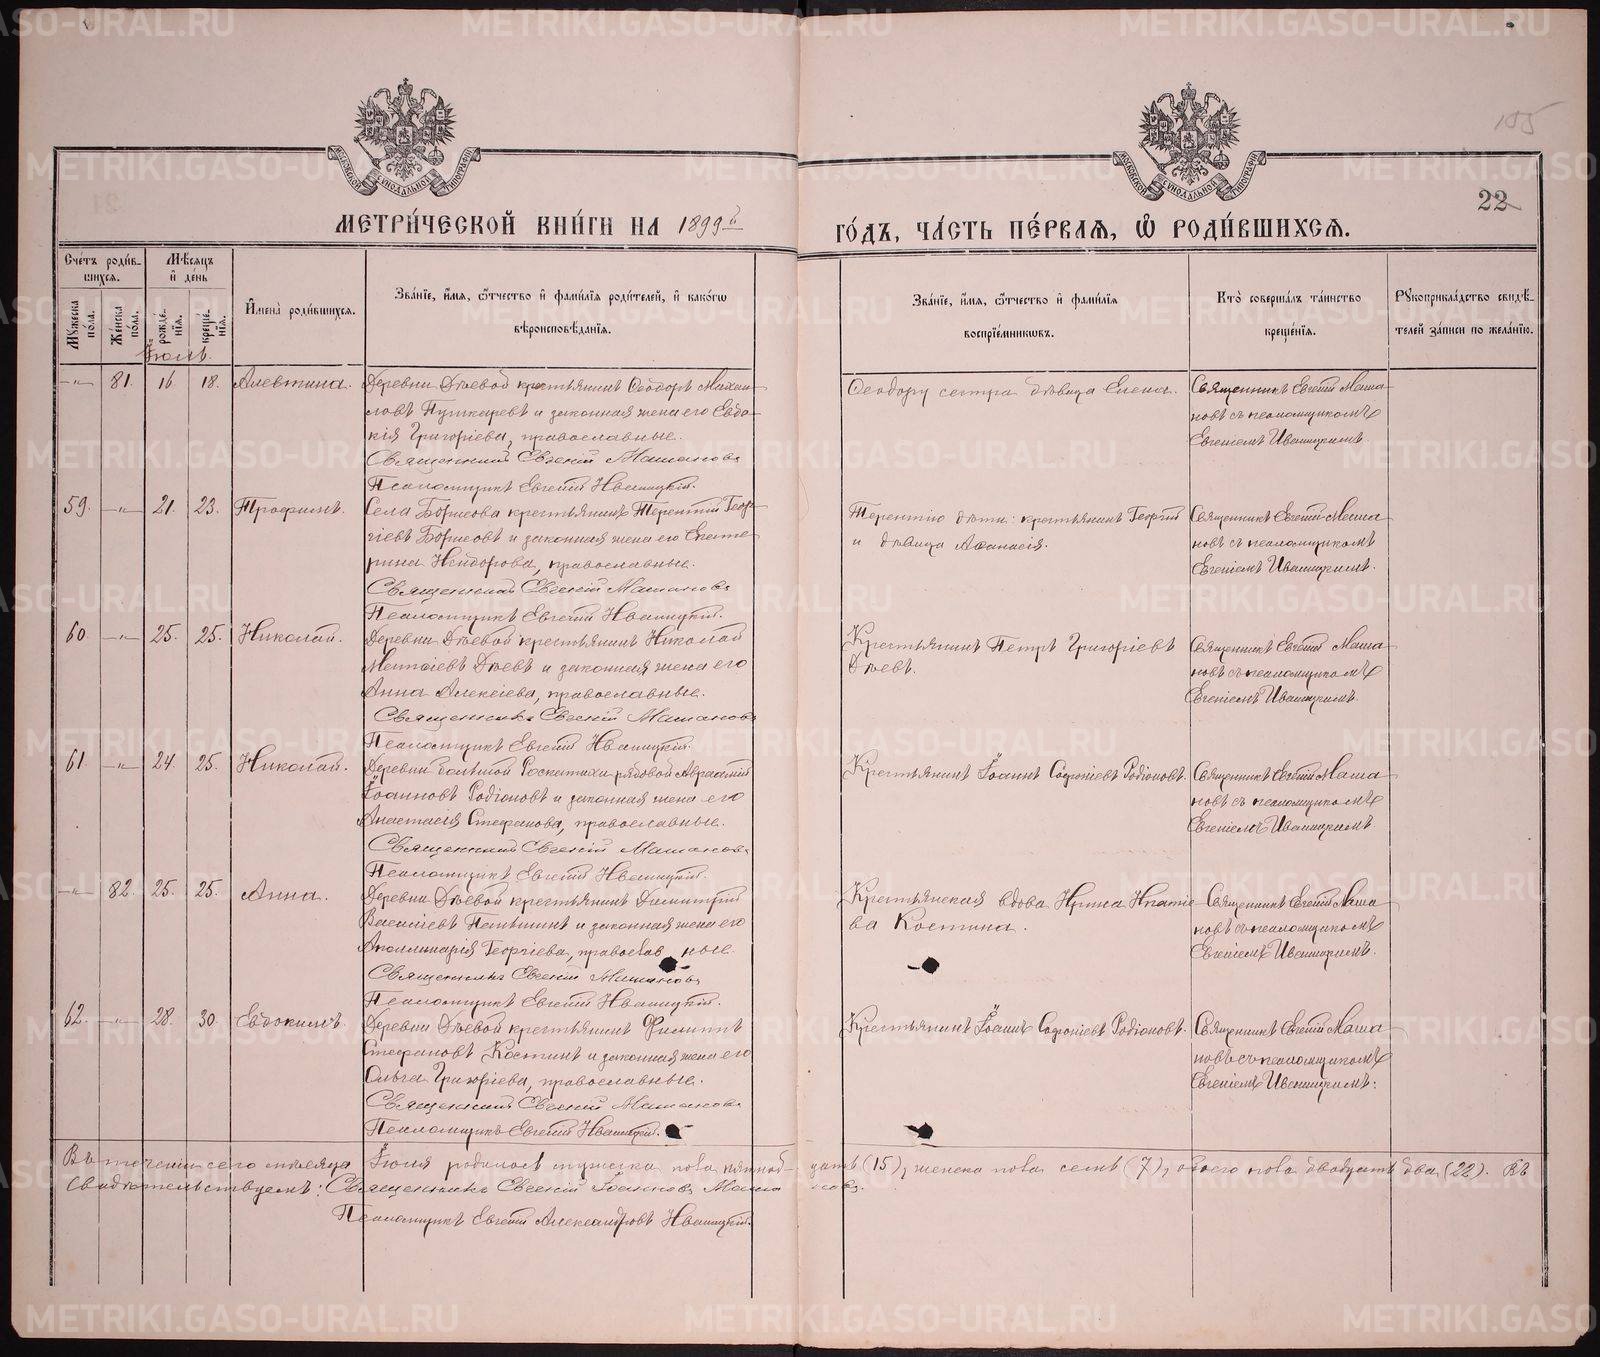 155
22
МЕТРИ́ЧЕСКОЙ КНИ́ГИ НА 1899й ГО́ДЪ, ЧА́СТЬ ПЕ́РВАЯ, Ѽ РОДИ́ВШИХСЯ.
МОСКОВСКОЙ СѴНОДАЛЬНОЙ ТИПОГРАФІИ
МОСКОВСКОЙ СѴНОДАЛЬНОЙ ТИПОГРАФІИ
Сче́тъ роди́вшихся.
Му́жеска по́ла.
Же́нска по́ла.
Мѣ́сяцъ и де́нь
рожде́нїя.
креще́нїя.
И҆мена̀ роди́вшихся.
Зва́нїе, и҆́мя, ѻ҆́тчество и҆ фами́лїя роди́телей, и҆ како́гѡ вѣроисповѣ́данїя.
Зва́нїе, и҆́мя, ѻ҆́тчество и҆ фами́лїя воспрїе́мниковъ.
Кто̀ соверша́лъ та́инство креще́нїя.
Рꙋкоприкла́дство свидѣ́телей за́писи по жела́нїю.
Іюль.
-"- 81. 16. 18. Алевтина.
Деревни Дѣевой крестьянинъ Ѳеодоръ Михаи-
ловъ Пушкаревъ и законная жена его Евдо-
кія Григоріева, православные.
Священникъ Евгеній Машановъ
Псаломщикъ Евгеній Иваницкій.
Ѳеодору сестра дѣвица Елена.
Священникъ Евгеній Маша-
новъ съ псаломщикомъ
Евгеніемъ Иваницкимъ
59. -"- 21. 23. Трофимъ.
Села Борисова крестьянинъ Терентій Геор-
гіевъ Борисовъ и законная жена его Екате-
рина Исидорова, православные.
Священникъ Евгеній Машановъ
Псаломщикъ Евгеній Иваницкій.
Терентію дѣти: крестьянинъ Георгій
и дѣвица Аѳанасія.
Священникъ Евгеній Маша-
новъ съ псаломщикомъ
Евгеніемъ Иваницкимъ.
60. -"- 25. 25. Николай.
Деревни Дѣевой крестьянинъ Николай
Матѳіевъ Дѣевъ и законная жена его
Анна Алексіева, православные.
Священникъ Евгеній Машановъ
Псаломщикъ Евгеній Иваницкій.
Крестьянинъ Петръ Григоріевъ
Дѣевъ.
Священникъ Евгеній Маша-
новъ съ псаломщикомъ
Евгеніемъ Иваницкимъ.
61. -"- 24. 25. Николай.
Деревни Большой Роскатихи рядовой Авраамій
Іоанновъ Родіоновъ и законная жена его
Анастасія Стефанова, православные.
Священникъ Евгеній Машановъ
Псаломщикъ Евгеній Иваницкій.
Крестьянинъ Іоаннъ Софоніевъ Родіоновъ.
Священникъ Евгеній Маша-
новъ съ псаломщикомъ
Евгеніемъ Иваницкимъ
-"- 82. 25. 25. Анна.
Деревни Дѣевой крестьянинъ Димитрій
Василіевъ Пеньшинъ и законная жена его
Аполлинарія Георгіева, православные.
Священникъ Евгеній Машановъ
Псаломщикъ Евгеній Иваницкій.
Крестьянская вдова Ирина Игнатіе-
ва Костина.
Священникъ Евгеній Маша-
новъ съ псаломщикомъ
Евгеніемъ Иваницкимъ.
62. -"- 28. 30. Евдокимъ.
Деревни Дѣевой крестьянинъ Филиппъ
Стефановъ Костинъ и законная жена его
Ольга Григоріева, православные.
Священникъ Евгеній Машановъ
Псаломщикъ Евгеній Иваницкій.
Крестьянинъ Іоаннъ Софоніевъ Родіоновъ.
Священникъ Евгеній Маша-
новъ съ псаломщикомъ
Евгеніемъ Иваницкимъ.
Въ теченіи сего мѣсяца Іюля родилось мужска пола пятнад-цать (15), женска пола семь (7), обоего пола двадцать два (22). Въ
свидѣтельствуемъ: Священникъ Евгеній Іоанновъ Машановъ.
Псаломщикъ Евгеній Александровъ Иваницкій.
METRIKI.GASO-URAL.RU